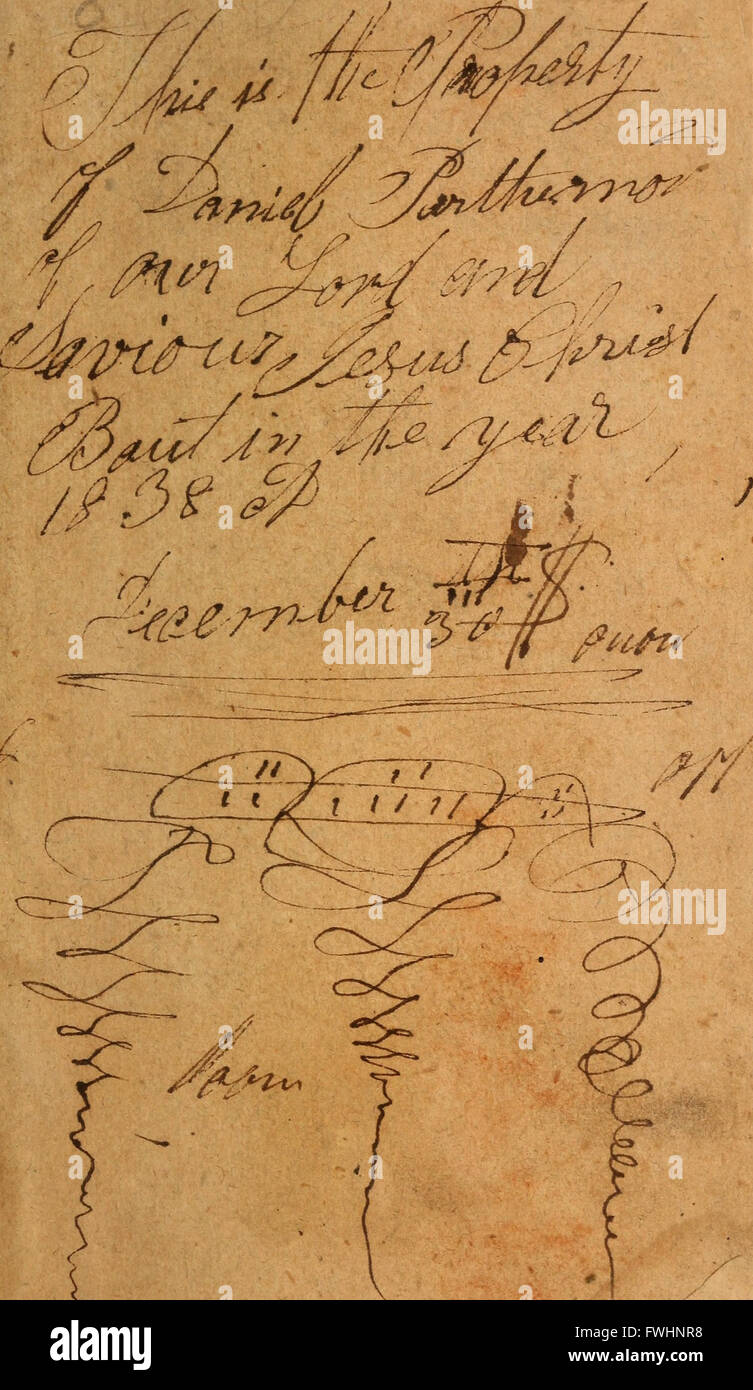 This is the Property
of Daniel Parthemor
of our Lord and
Saviour Jesus Christ
Baut in the year
1838 AD
December 30th
alamy
Image ID: FWHNR8
www.alamy.com